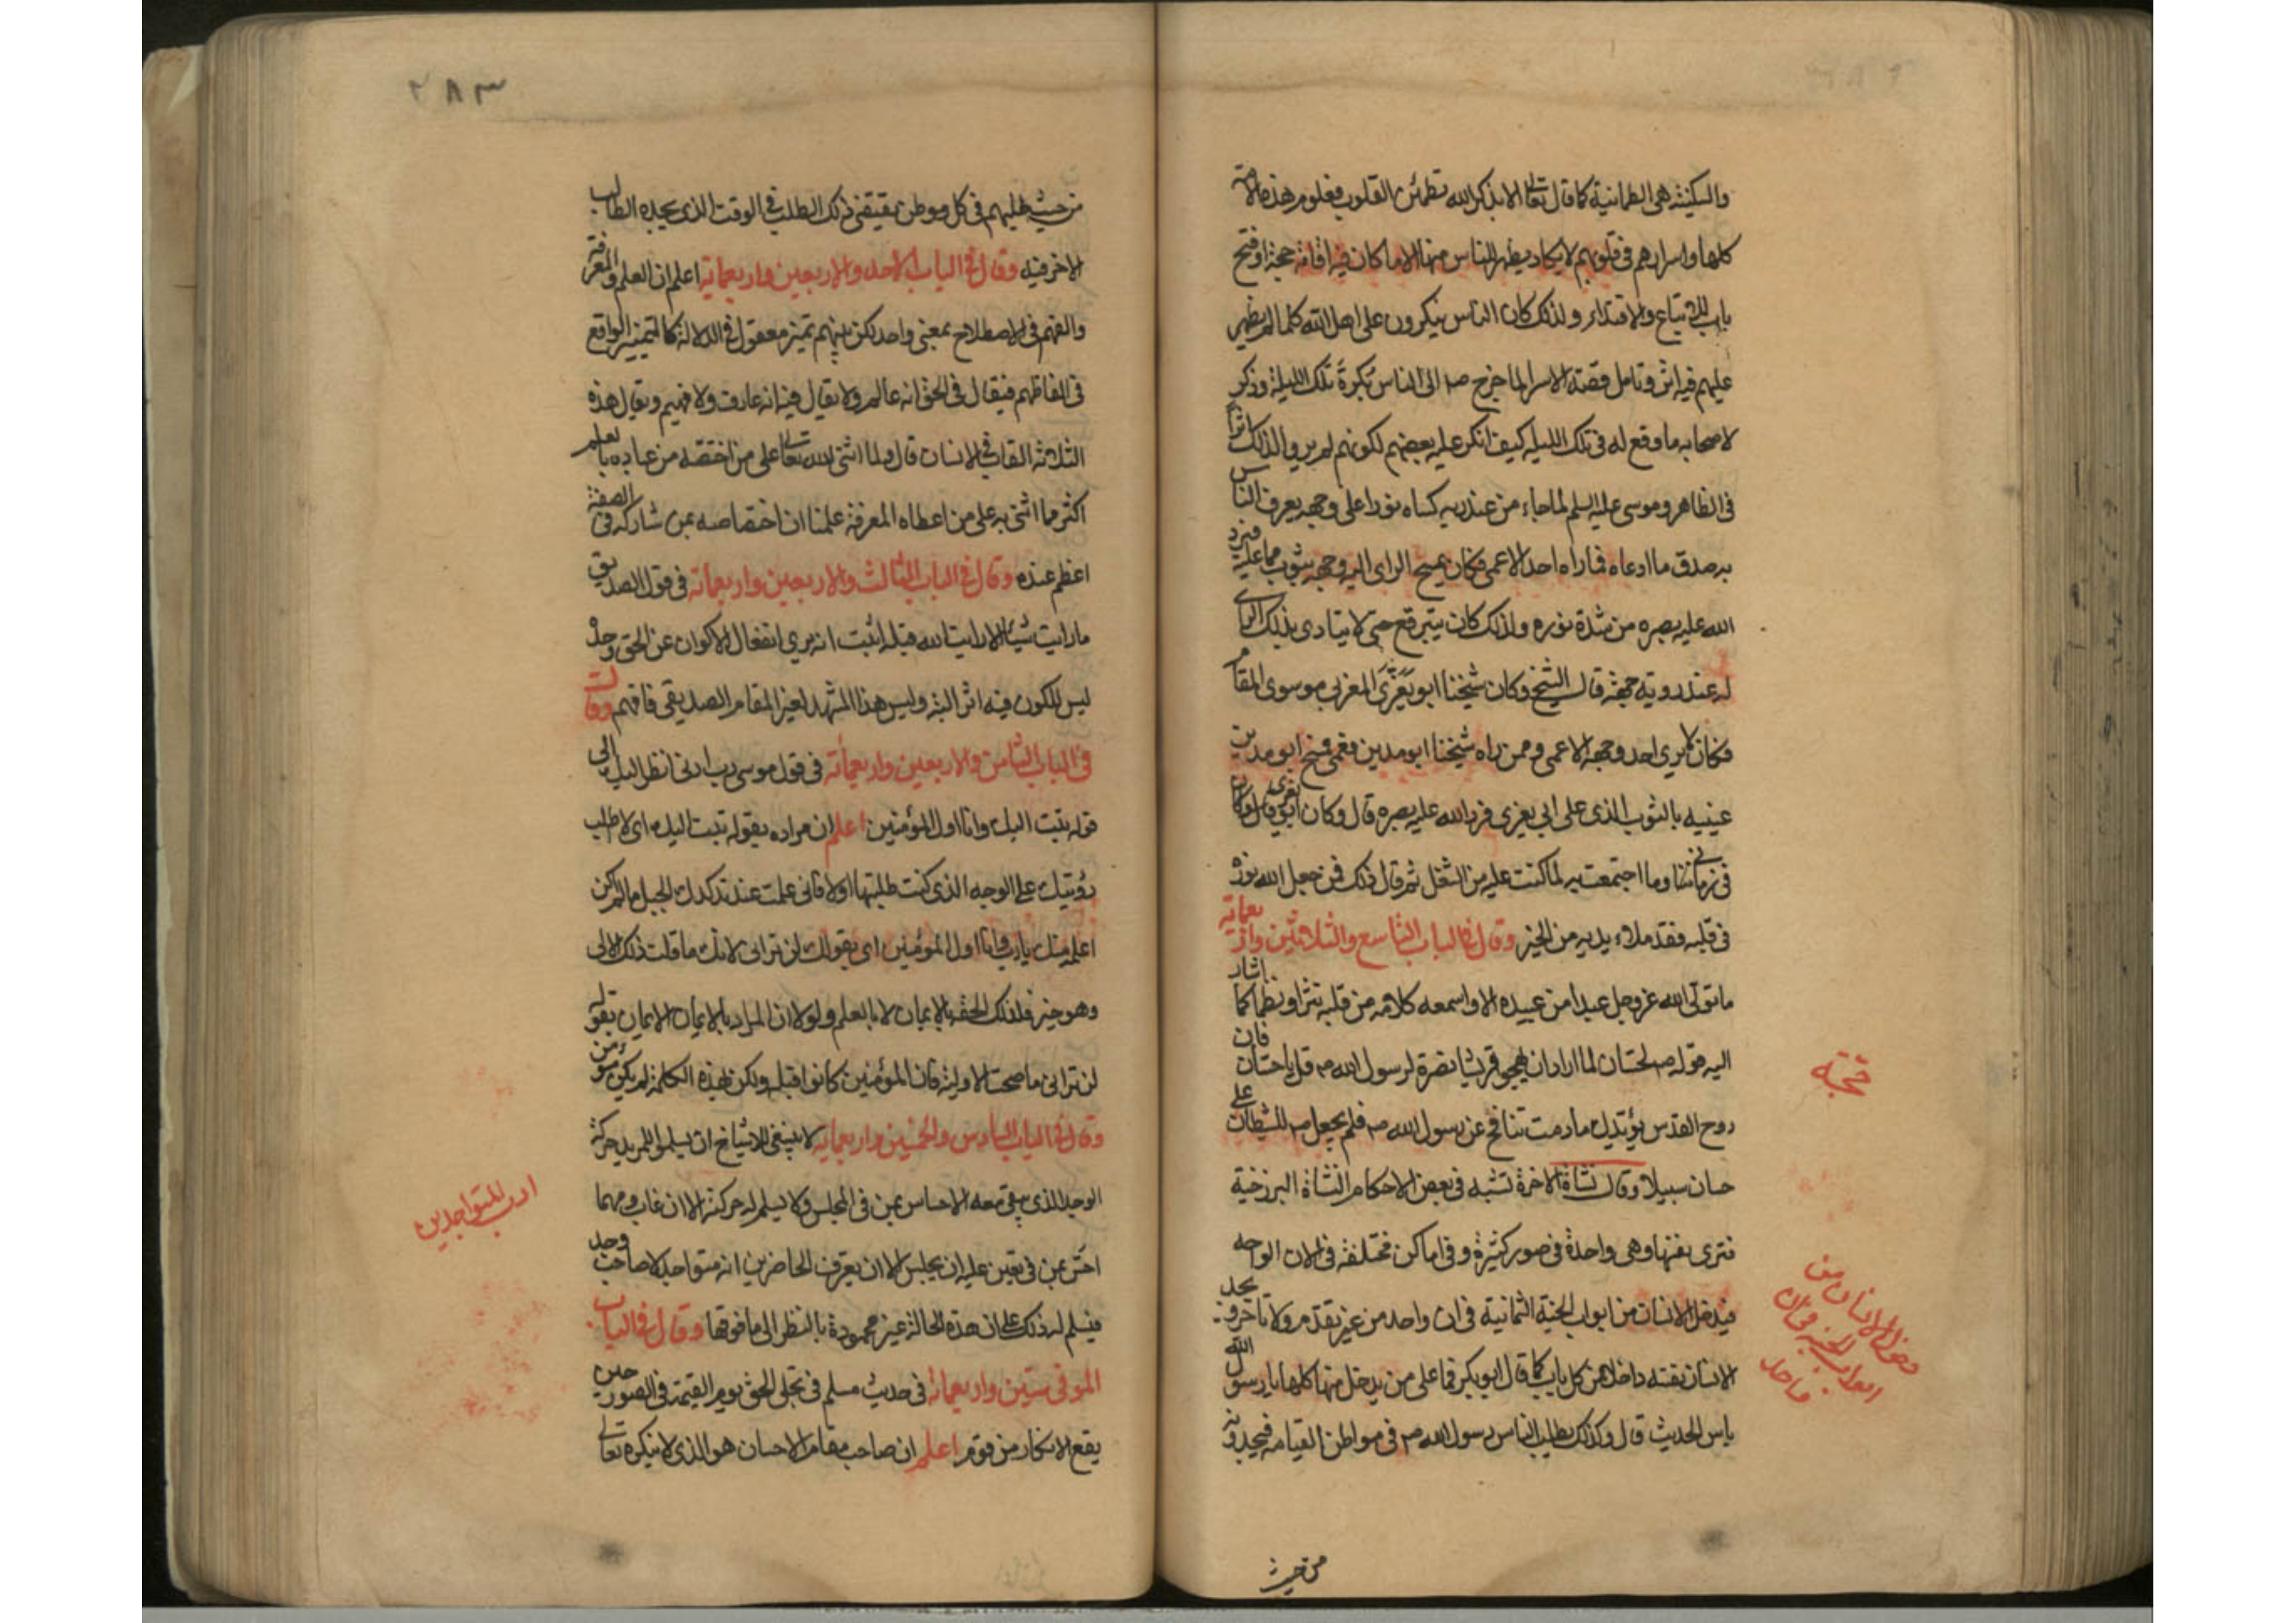 والسكينة هى الطمانية كما قال تعالى الا بذكر الله تطمئن القلوب فعلوم هذه الامة
كلها واسرارهم فى قلوبهم لا يكاد يظهر للناس منها الا ما كان فيه اقامة حجة او فتح
باب للاتباع والاقتداء ولذلك كان الناس ينكرون على اهل الله كلما لم يظهر
عليهم فيه اثر وتامل قصة الاسرا لما خرج صم الى الناس بكرة تلك الليلة وذكر
لاصحابه ما وقع له فى تلك الليله كيف انكر عليه بعضهم لكونهم لم يروا لذلك اثرا
فى الظاهر وموسى عليه السلم لما جاء من عند ربه كساه نورا على وجهه يعرف الناس
به صدق ما ادعاه فما راه احد الا عمى فكان يمسح الراى اليه وجهه بثوب مما عليه فيرد
الله عليه بصره من شدة نوره ولذلك كان يتبرقع حتى لا يتاذى بذلك الراى
له عند روية وجهه قال الشيخ وكان شيخنا ابو يعزى المغربى موسوى المقام
فكان لا يرى احد وجهه الا عمى وممن راه شيخنا ابو مدين فعمى فمسح ابو مدين
عينيه بالثوب الذى على ابى يعزى فرد الله عليه بصره قال وكان ابو يعزى
فى زماننا وما اجتمعت به لما كنت عليه من الشغل ثم قال ذلك فمن جعل الله نوره
فى قلبه فقد ملا يديه من الخير وقال فى الباب التاسع والثلاثين واربعماية
ما تولى الله عز وجل عبدا من عبيده الا واسمعه كلامه من قلبه نثرا ونظما كما اشار
اليه قوله صم لحسان لما اراد ان يهجو قريشا نصرة لرسول الله صم قل يا حسان فان
روح القدس يؤيدك ما دمت تنافح عن رسول الله صم فلم يجعل صم للشيطان على
حسان سبيلا وقال نشاة الاخرة تشبه فى بعض الاحكام النشاة البرزخية
فترى نفسها وهى واحدة فى صور كثيرة وفى اماكن مختلفة فى الان الواحد
فيدخل الانسان من ابواب الجنة الثمانية فى ان واحد من غير تقدم ولا تاخر و يجد
الانسان نفسه داخلا من كل باب كما قال ابو بكر فما على من يدخل منها كلها يا رسول الله
باس الحديث قال وكذلك يطلب الناس رسول الله صم فى مواطن القيامه فيجدونه
من حيث
دخول الانسان من
ابواب الجنة فى ان
واحد
٢٨٣
من حيث طلبهم فى كل موطن يقتضى ذلك الطلب فى الوقت الذى يجده الطالب
الاخر فيه وقال فى الباب الاحد والاربعين واربعماية اعلم ان العلم والمعرفة
والفهم فى الاصطلاح بمعنى واحد لكن بينهم تميز معقول فى الدلالة كالتمييز الواقع
فى الفاظهم فيقال فى الحق انه عالم ولا يقال فيه انه عارف ولا فهيم وتقال هذه
الثلاثة القاب فى الانسان قال ولما اثنى الله تعالى على من اختصه من عباده بالعلم
اكثر مما اثنى به على من اعطاه المعرفة علمنا ان اختصاصه بمن شاركه فى الصفة
اعظم عنده وقال فى الباب الثالث والاربعين واربعماية فى قول الصديق
ما رايت شيئا الا رايت الله قبله اثبت انه يرى انفعال الاكوان عن الحق وحده
ليس للكون فيه اثر البتة وليس هذا المشهد لغير المقام الصديقى فافهم وقال
فى الباب الثامن والاربعين واربعمائة فى قول موسى رب ارنى انظر اليك الى
قوله تبت اليك وانا اول المؤمنين اعلم ان مراده بقوله تبت اليك اى لا اطلب
رؤيتك على الوجه الذى كنت طلبتها اولا فانى علمت عند تدكدك الجبل ما لم اكن
اعلم منك يا رب وانا اول المؤمنين اى بقولك لن ترانى لانك ما قلت ذلك الا لى
وهو خبر فلذلك الحقه بالايمان لا بالعلم ولولا ان المراد بالايمان الايمان بقوله
لن ترانى ما صحت الاولية فان المؤمنين كانوا قبله ولكن بهذه الكلمة لم يكن مؤمن
وقال فى الباب السادس والخمسين واربعماية لا ينبغى للاشياخ ان يسلموا للمريد حركة
الوجد الذى يبقى معه الاحساس بمن فى المجلس ولا يسلم له حركته الا ان غاب ومهما
احس بمن فى تعين عليه ان يجلس الا ان يعرف الحاضرين انه متواجد لا صاحب وجد
فيسلم له ذلك على ان هذه الحالة غير محمودة بالنظر الى ما فوقها وقال فى الباب
الموفى ستين واربعمائة فى حديث مسلم فى تجلى الحق يوم القيمة فى الصور حين
يقع الانكار من قوم اعلم ان صاحب مقام الاحسان هو الذى لا ينكره تعالى
ادب المتواجدين